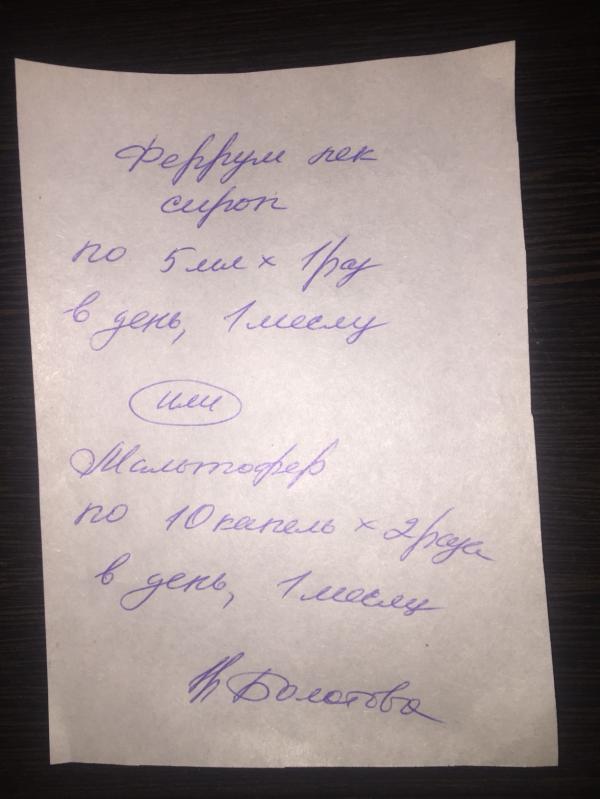 Феррум лек
сироп
по 5 мл × 1 раз
в день, 1 месяц
или
Мальтофер
по 10 капель × 2 раза
в день, 1 месяц
Болотова